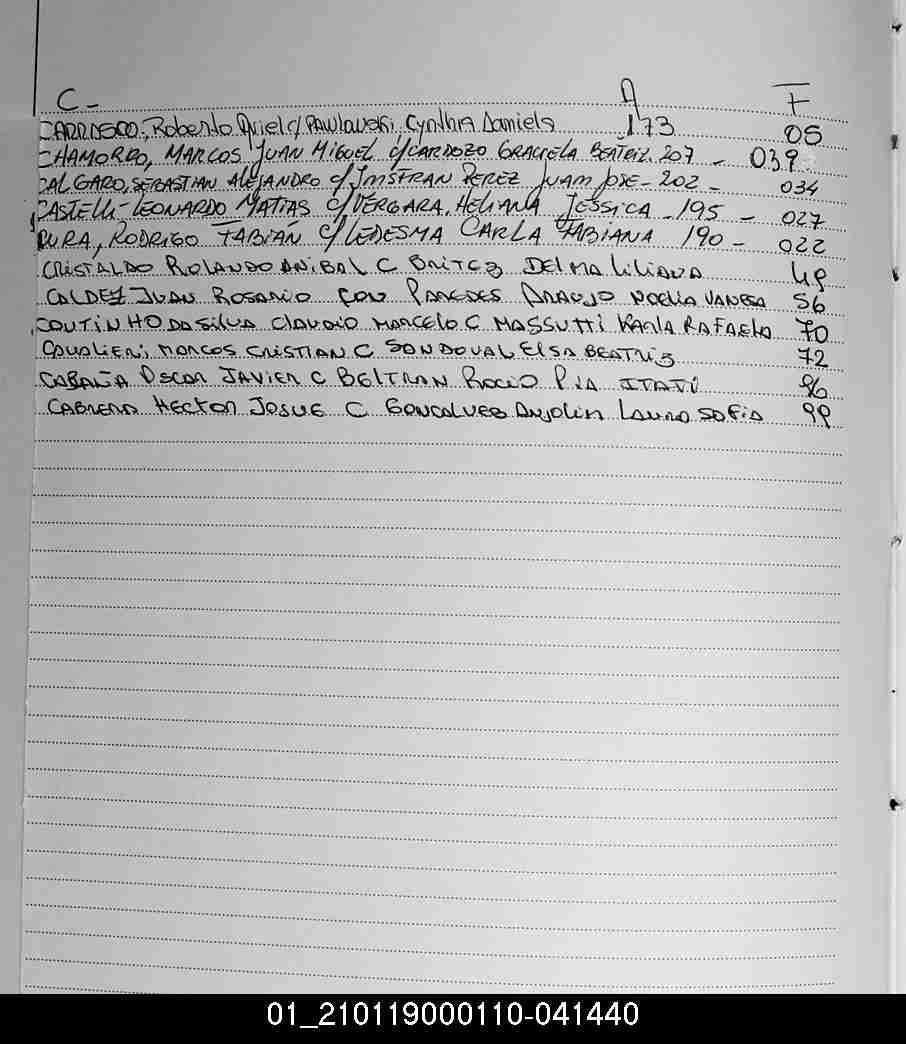 C- A F
CARRASCO, Roberto Ariel c/ PAWlawski, Cynthia Daniela 173 05
CHAMORRO, MARCOS JUAN MIGUEL c/ CARDOZO GRACIELA BEATRIZ. 207 - 039
CALGARO, SEBASTIAN ALEJANDRO c/ INSFRAN PEREZ JUAN JOSE - 202 - 034
CASTELLI - LEONARDO MATIAS c/ VERGARA, HELIANA JESSICA - 195 - 027
CURA, RODRIGO FABIAN c/ LEDESMA CARLA FABIANA 190 - 022
CRISTALDO ROLANDO ANIBAL C BRITEZ DELMA LILIANA 49
CALDEZ JUAN ROSARIO CON PAREDES ARAUJO NOELIA VANESA 56
COUTINHO DA SILVA CLAUDIO MARCELO C MASSUTTI KARLA RAFAELA 70
CAVALIERI, MARCOS CRISTIAN C SANDOVAL ELSA BEATRIZ 72
CABAÑA OSCAR JAVIER C BELTRAN ROCIO PIA ITATI 96
CABRERA HECTOR JOSUE C GONCALVES ANJOLIN LAURA SOFIA 99
01_210119000110-041440